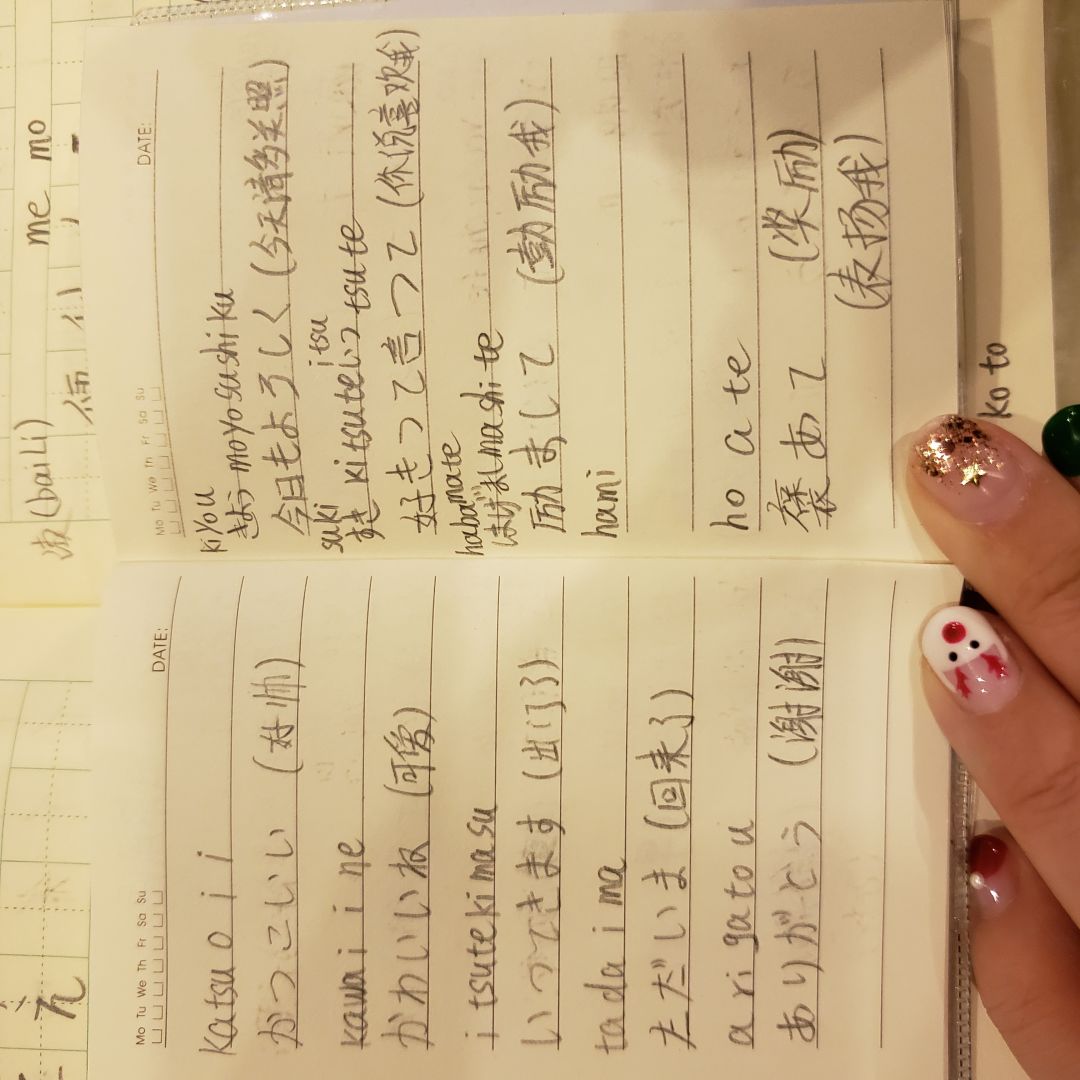 Mo Tu We Th Fr Sa Su
DATE:
katsu o i i
かっこいい (好帅)
kawa i i ne
かわいいね (可爱)
itsutekimasu
いってきます (出门了)
ta da i ma
ただいま (回来了)
a ri ga to u
ありがとう (谢谢)
Mo Tu We Th Fr Sa Su
DATE:
kiyou
きょう moyosushiku
今日もよろしく (今天请多关照)
suki itsu
すき kitsuteいっtsute
好きって言って (你说喜欢我)
habamate
はげましmashite
励まして (勤励我)
hami
ho a te
褒あて (奖励)
(表扬我)
(baiLi) me mo
ko to